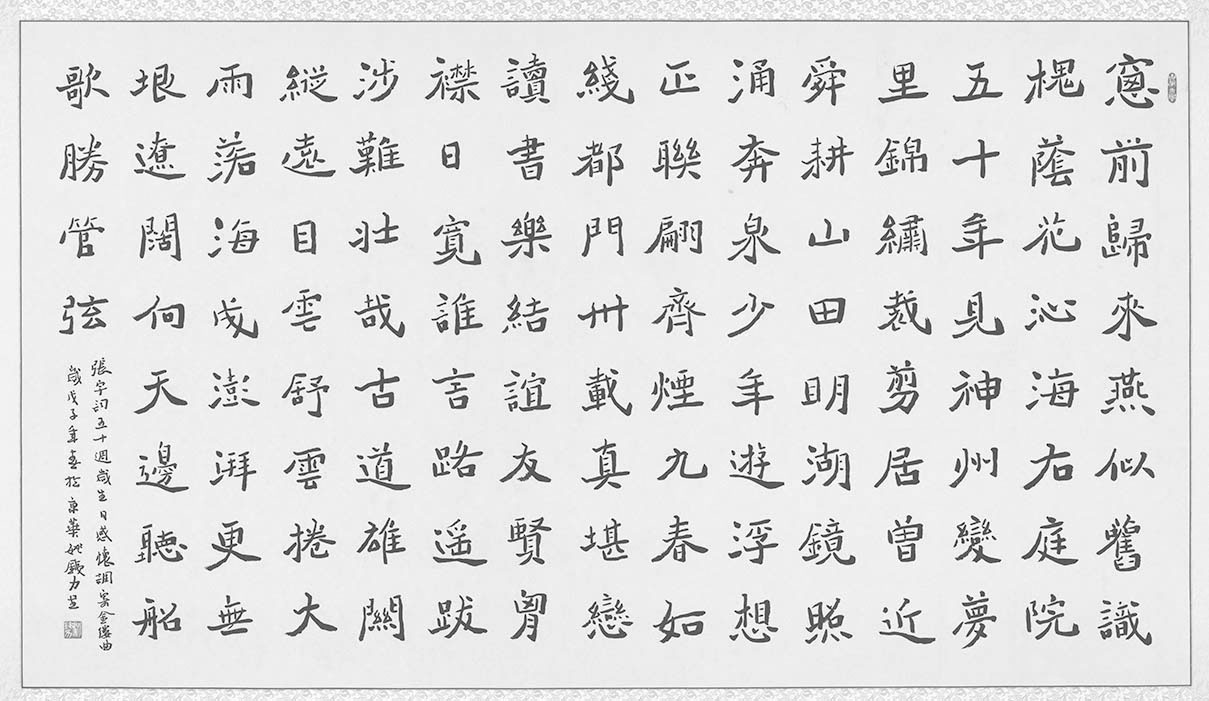 窻前歸來燕似舊識
槐蔭花沁海右庭院
五十年見神州變夢
里錦繡裁剪居曾近
舜耕山田明湖鏡照
涌奔泉少年遊浮想
正聯翩齊煙九春如
綫都門卅載真堪戀
讀書樂結誼友賢胷
襟日寬誰言路遥跋
涉難壯哉古道雄關
縱遠目雲舒雲捲大
雨落海成澎湃更無
垠遼闊何天邊聽船
歌勝管弦
張宇詞五十週歲生日感懷調寄金縷曲
歲戊子年春於京華姚力